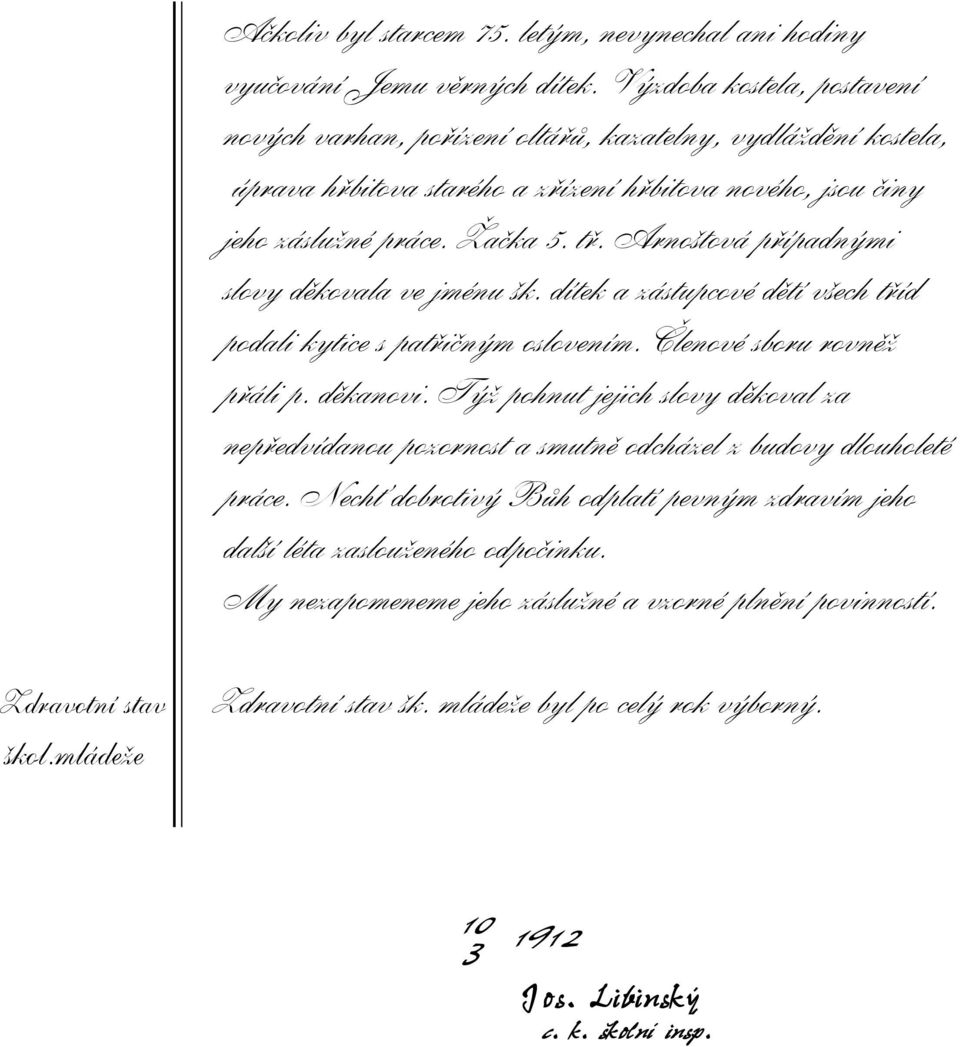 Ačkoliv byl starcem 75. letým, nevynechal ani hodiny
vyučování Jemu věrných dítek. Výzdoba kostela, postavení
nových varhan, pořízení oltářů, kazatelny, vydláždění kostela,
úprava hřbitova starého a zřízení hřbitova nového, jsou činy
jeho záslužné práce. Žačka 5. tř. Arnoštová případnými
slovy děkovala ve jménu šk. dítek a zástupcové dětí všech tříd
podali kytice s patřičným oslovením. Členové sboru rovněž
přáli p. děkanovi. Týž pohnut jejich slovy děkoval za
nepředvídanou pozornost a smutně odcházel z budovy dlouholeté
práce. Nechť dobrotivý Bůh odplatí pevným zdravím jeho
další léta zaslouženého odpočinku.
My nezapomeneme jeho záslužné a vzorné plnění povinností.
Zdravotní stav
škol.mládeže
Zdravotní stav šk. mládeže byl po celý rok výborný.
10
3 1912
Jos. Libinský
c. k. školní insp.